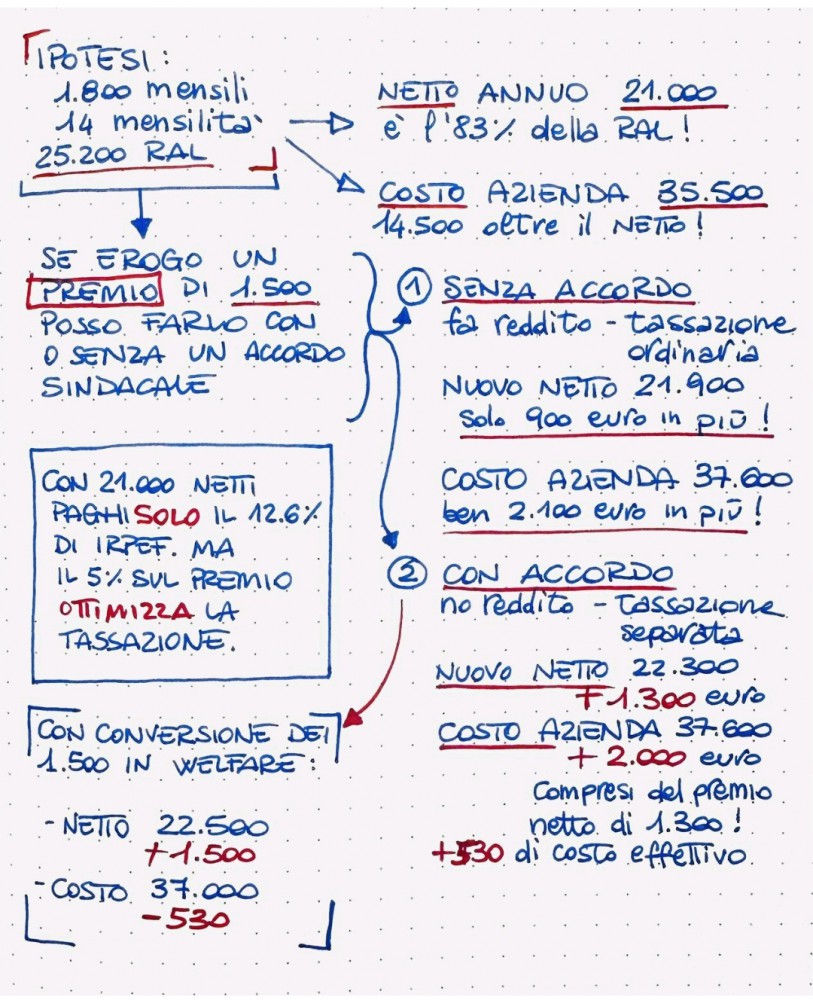 IPOTESI:
1.800 mensili
14 mensilità
25.200 RAL
NETTO ANNUO 21.000
è l'83% della RAL!
COSTO AZIENDA 35.500
14.500 oltre il NETTO!
SE EROGO UN
PREMIO DI 1.500
POSSO FARLO CON
O SENZA UN ACCORDO
SINDACALE
1 SENZA ACCORDO
fa reddito - tassazione
ordinaria
NUOVO NETTO 21.900
solo 900 euro in più!
COSTO AZIENDA 37.600
ben 2.100 euro in più!
CON 21.000 NETTI
PAGHI SOLO IL 12.6%
DI IRPEF. MA
IL 5% SUL PREMIO
OTTIMIZZA LA
TASSAZIONE.
2 CON ACCORDO
no reddito - tassazione
separata
NUOVO NETTO 22.300
+1.300 euro
COSTO AZIENDA 37.600
+ 2.000 euro
compresi del premio
netto di 1.300!
+530 di costo effettivo
CON CONVERSIONE DEI
1.500 IN WELFARE:
- NETTO 22.500
+1.500
- COSTO 37.000
-530